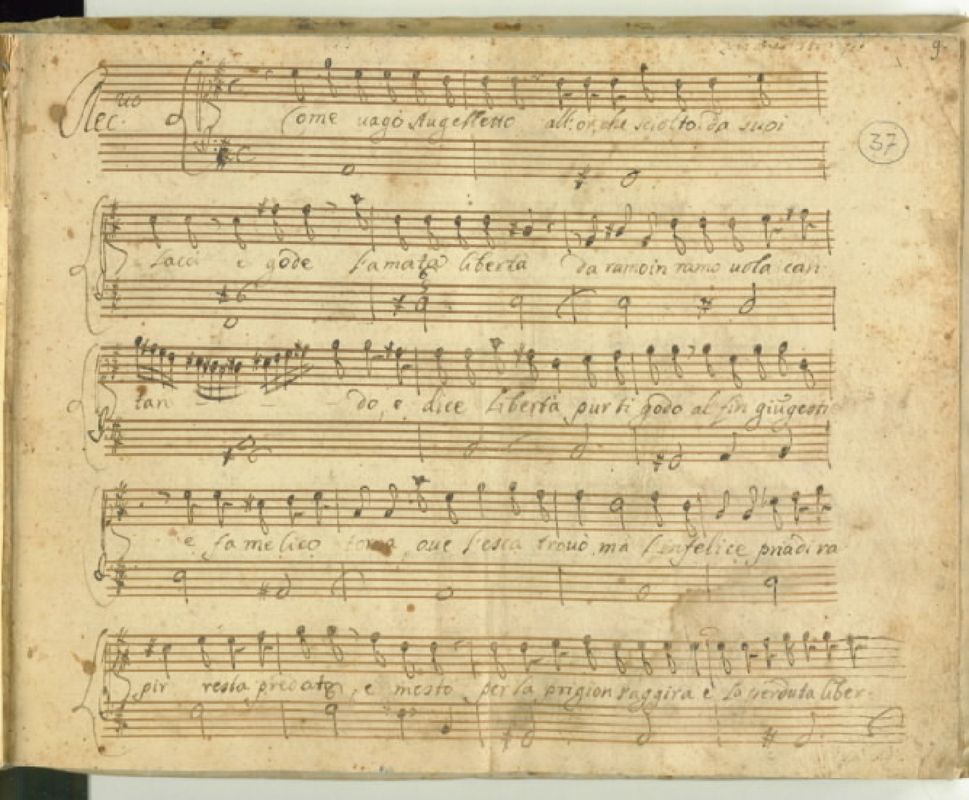 9
37
Rec.vo Come vago Augelletto all'or, che sciolto da suoi
Lacci e gode L'amata libertà da ramo in ramo vola can-
tan do, e dice Libertà pur ti godo al fin giu
e famelico torna, ove L'esca trovò, ma L'infelice pria di ra-
pir resta predato, e mesto per la prigion raggira e La perduta liber-